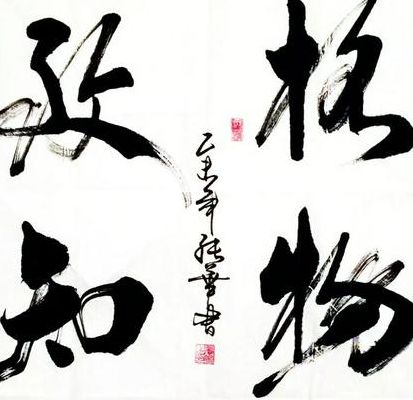 格物
致知
乙未年張華書